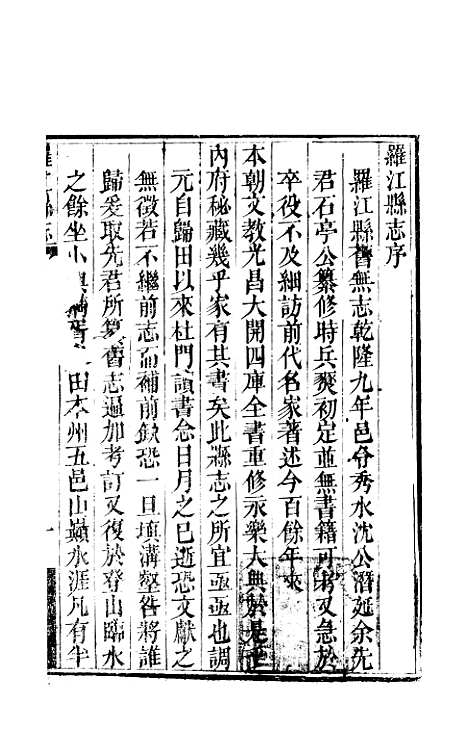 羅江縣志序
羅江縣舊無志乾隆九年邑令秀水沈公潛延余先
君石亭公纂修時兵燹初定並無書籍可考又急於
卒役不及細訪前代名家著述今百餘年來
本朝文教光昌大開四庫全書重修永樂大典於是
內府秘藏幾乎家有其書矣此縣志之所宜亟亟也調
元自歸田以來杜門讀書念日月之已逝恐文獻之
無徵若不繼前志而補前欽恐一旦填溝壑咎將誰
歸爰取先君所纂舊志逼加考訂又復於登山臨水
之餘坐小 田本州五邑山巔水涯凡有半
羅江縣志